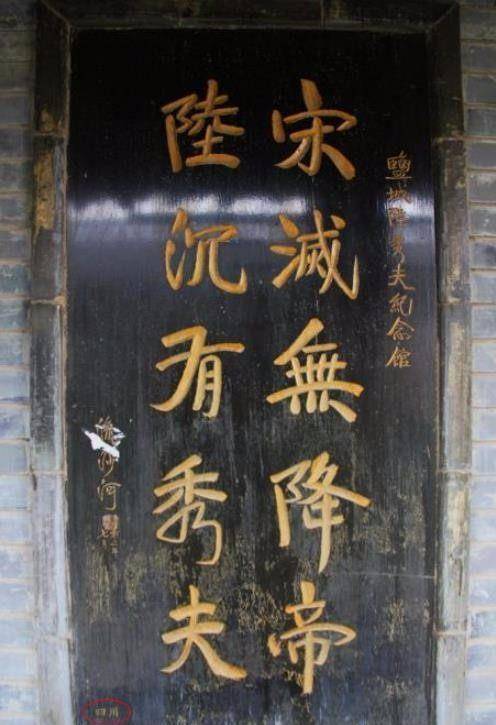 鹽城陸秀夫紀念館
宋滅無降帝
陸沉有秀夫
流沙河
四川